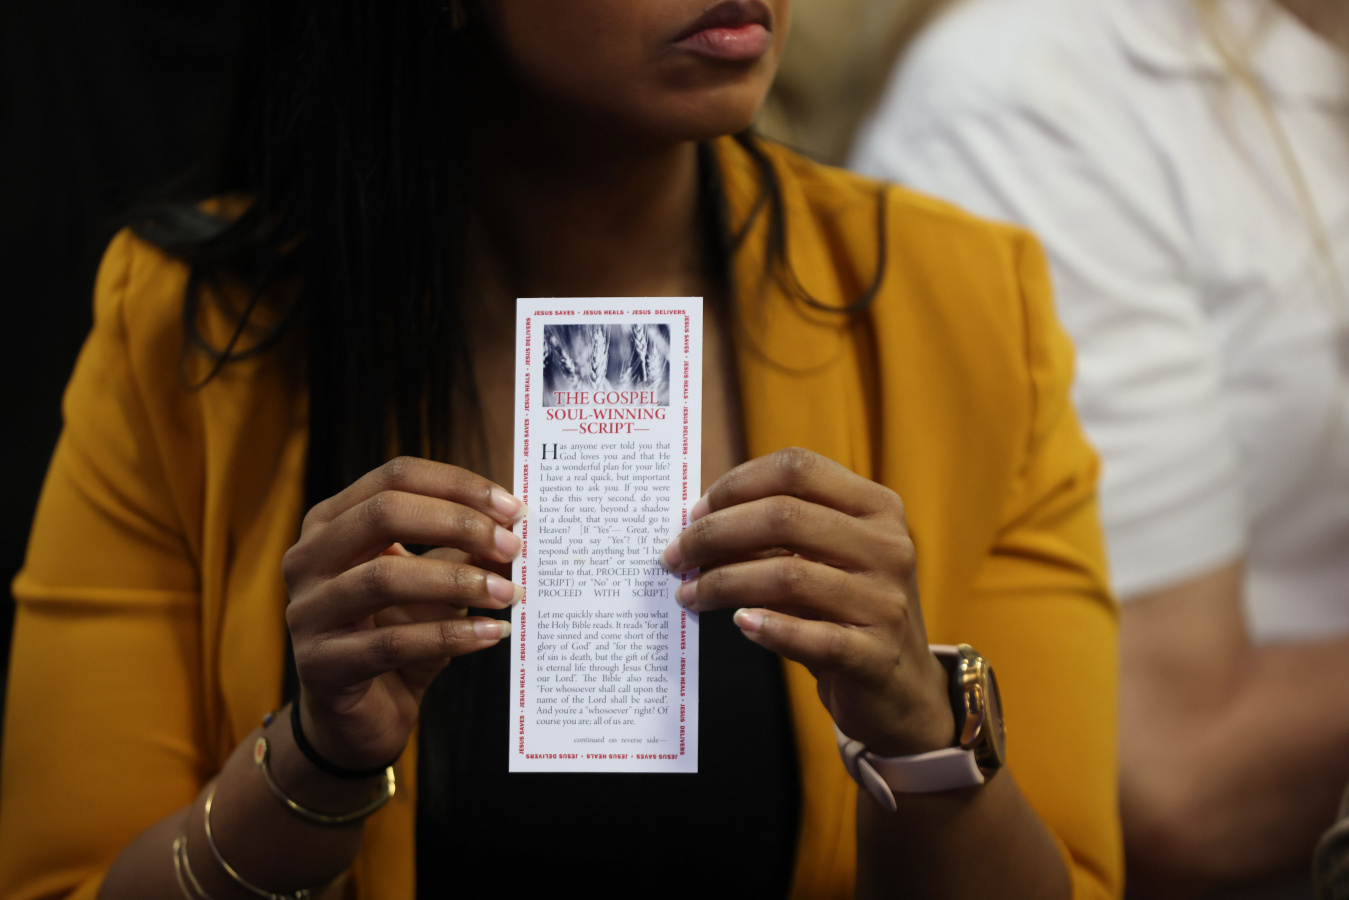 JESUS SAVES • JESUS HEALS • JESUS DELIVERS
THE GOSPEL
SOUL-WINNING
—SCRIPT—
Has anyone ever told you that
God loves you and that He
has a wonderful plan for your life?
I have a real quick, but important
question to ask you. If you were
to die this very second, do you
know for sure, beyond a shadow
of a doubt, that you would go to
Heaven? [If "Yes"— Great, why
would you say "Yes"? (If they
respond with anything but "I have
Jesus in my heart" or something
similar to that, PROCEED WITH
SCRIPT) or "No" or "I hope so"
PROCEED WITH SCRIPT.]
Let me quickly share with you what
the Holy Bible reads. It reads "for all
have sinned and come short of the
glory of God" and "for the wages
of sin is death, but the gift of God
is eternal life through Jesus Christ
our Lord". The Bible also reads,
"For whosoever shall call upon the
name of the Lord shall be saved".
And you're a "whosoever" right? Of
course you are; all of us are.
continued on reverse side—
JESUS SAVES • JESUS HEALS • JESUS DELIVERS
JESUS SAVES • JESUS HEALS • JESUS DELIVERS • JESUS SAVES
JESUS SAVES • JESUS HEALS • JESUS DELIVERS
JESUS SAVES • JESUS HEALS • JESUS DELIVERS
JESUS HEALS
JESUS DELIVERS • JESUS SAVES • JESUS HEALS • JESUS DELIVERS